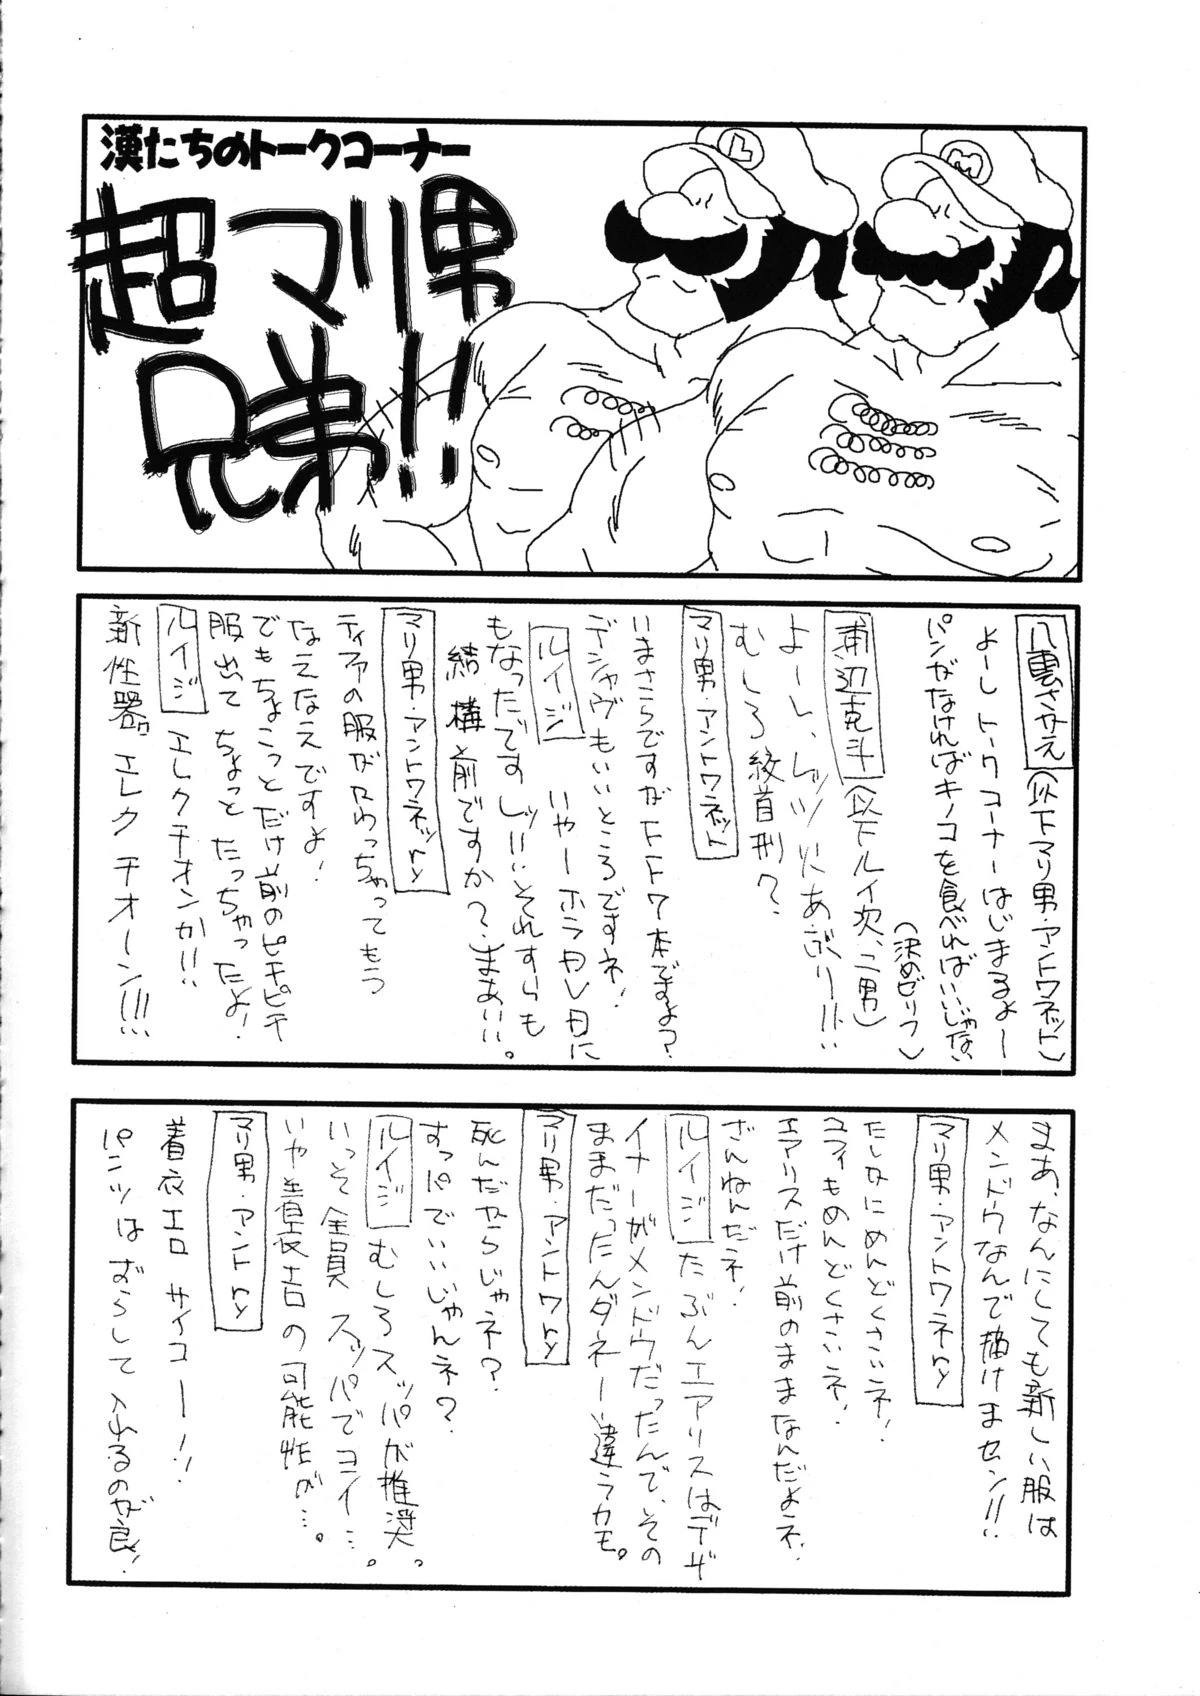 漢たちのトークコーナー
超マリ男
兄弟!!
L
M
八雲さかえ(以下マリ男・アントワネット)
よーしトークコーナーはじまるよー
パンがなければキノコを食べればいいじゃない
(決めゼリフ)
浦辺克斗(以下ルイ次、二男)
よーし、レッツ火あぶりー!!
むしろ絞首刑?
マリ男・アントワネット
いまさらですがFF7本ですよ?
デジャヴもいいところですネ!
ルイジ いやーホラDVD日に
もなったですしッ!!それすらも
結構前ですか?まあいい。
マリ男・アントワネッry
ティファの服がかわっちゃってもう
なえなえですよ!
でもちょこっとだけ前のピチピチ
服出てちょっとたっちゃったよ!
ルイジ エレクチオンか!!!
新性器。エレクチオーン!!!
まあ、なんにしても新しい服は
メンドウなんで描けませン!!
マリ男・アントワネry
たしかにめんどくさいネ!
ユフィもめんどくさいネ!
エアリスだけ前のままなんだよネ!
ざんねんだネ!
ルイジ たぶんエアリスはデザ
イナーがメンドウだったんで、その
ままだったんダネー違うカモ。
マリ男・アントワry
死んだからじゃネ?
すっパでいいじゃんネ?
ルイジ むしろスッパが推奨。
いっそ全員スッパでコイ…。
いや着衣エロの可能性が…。
マリ男・アントry
着衣エロサイコー!!
パンツはずらして入れるのが良!